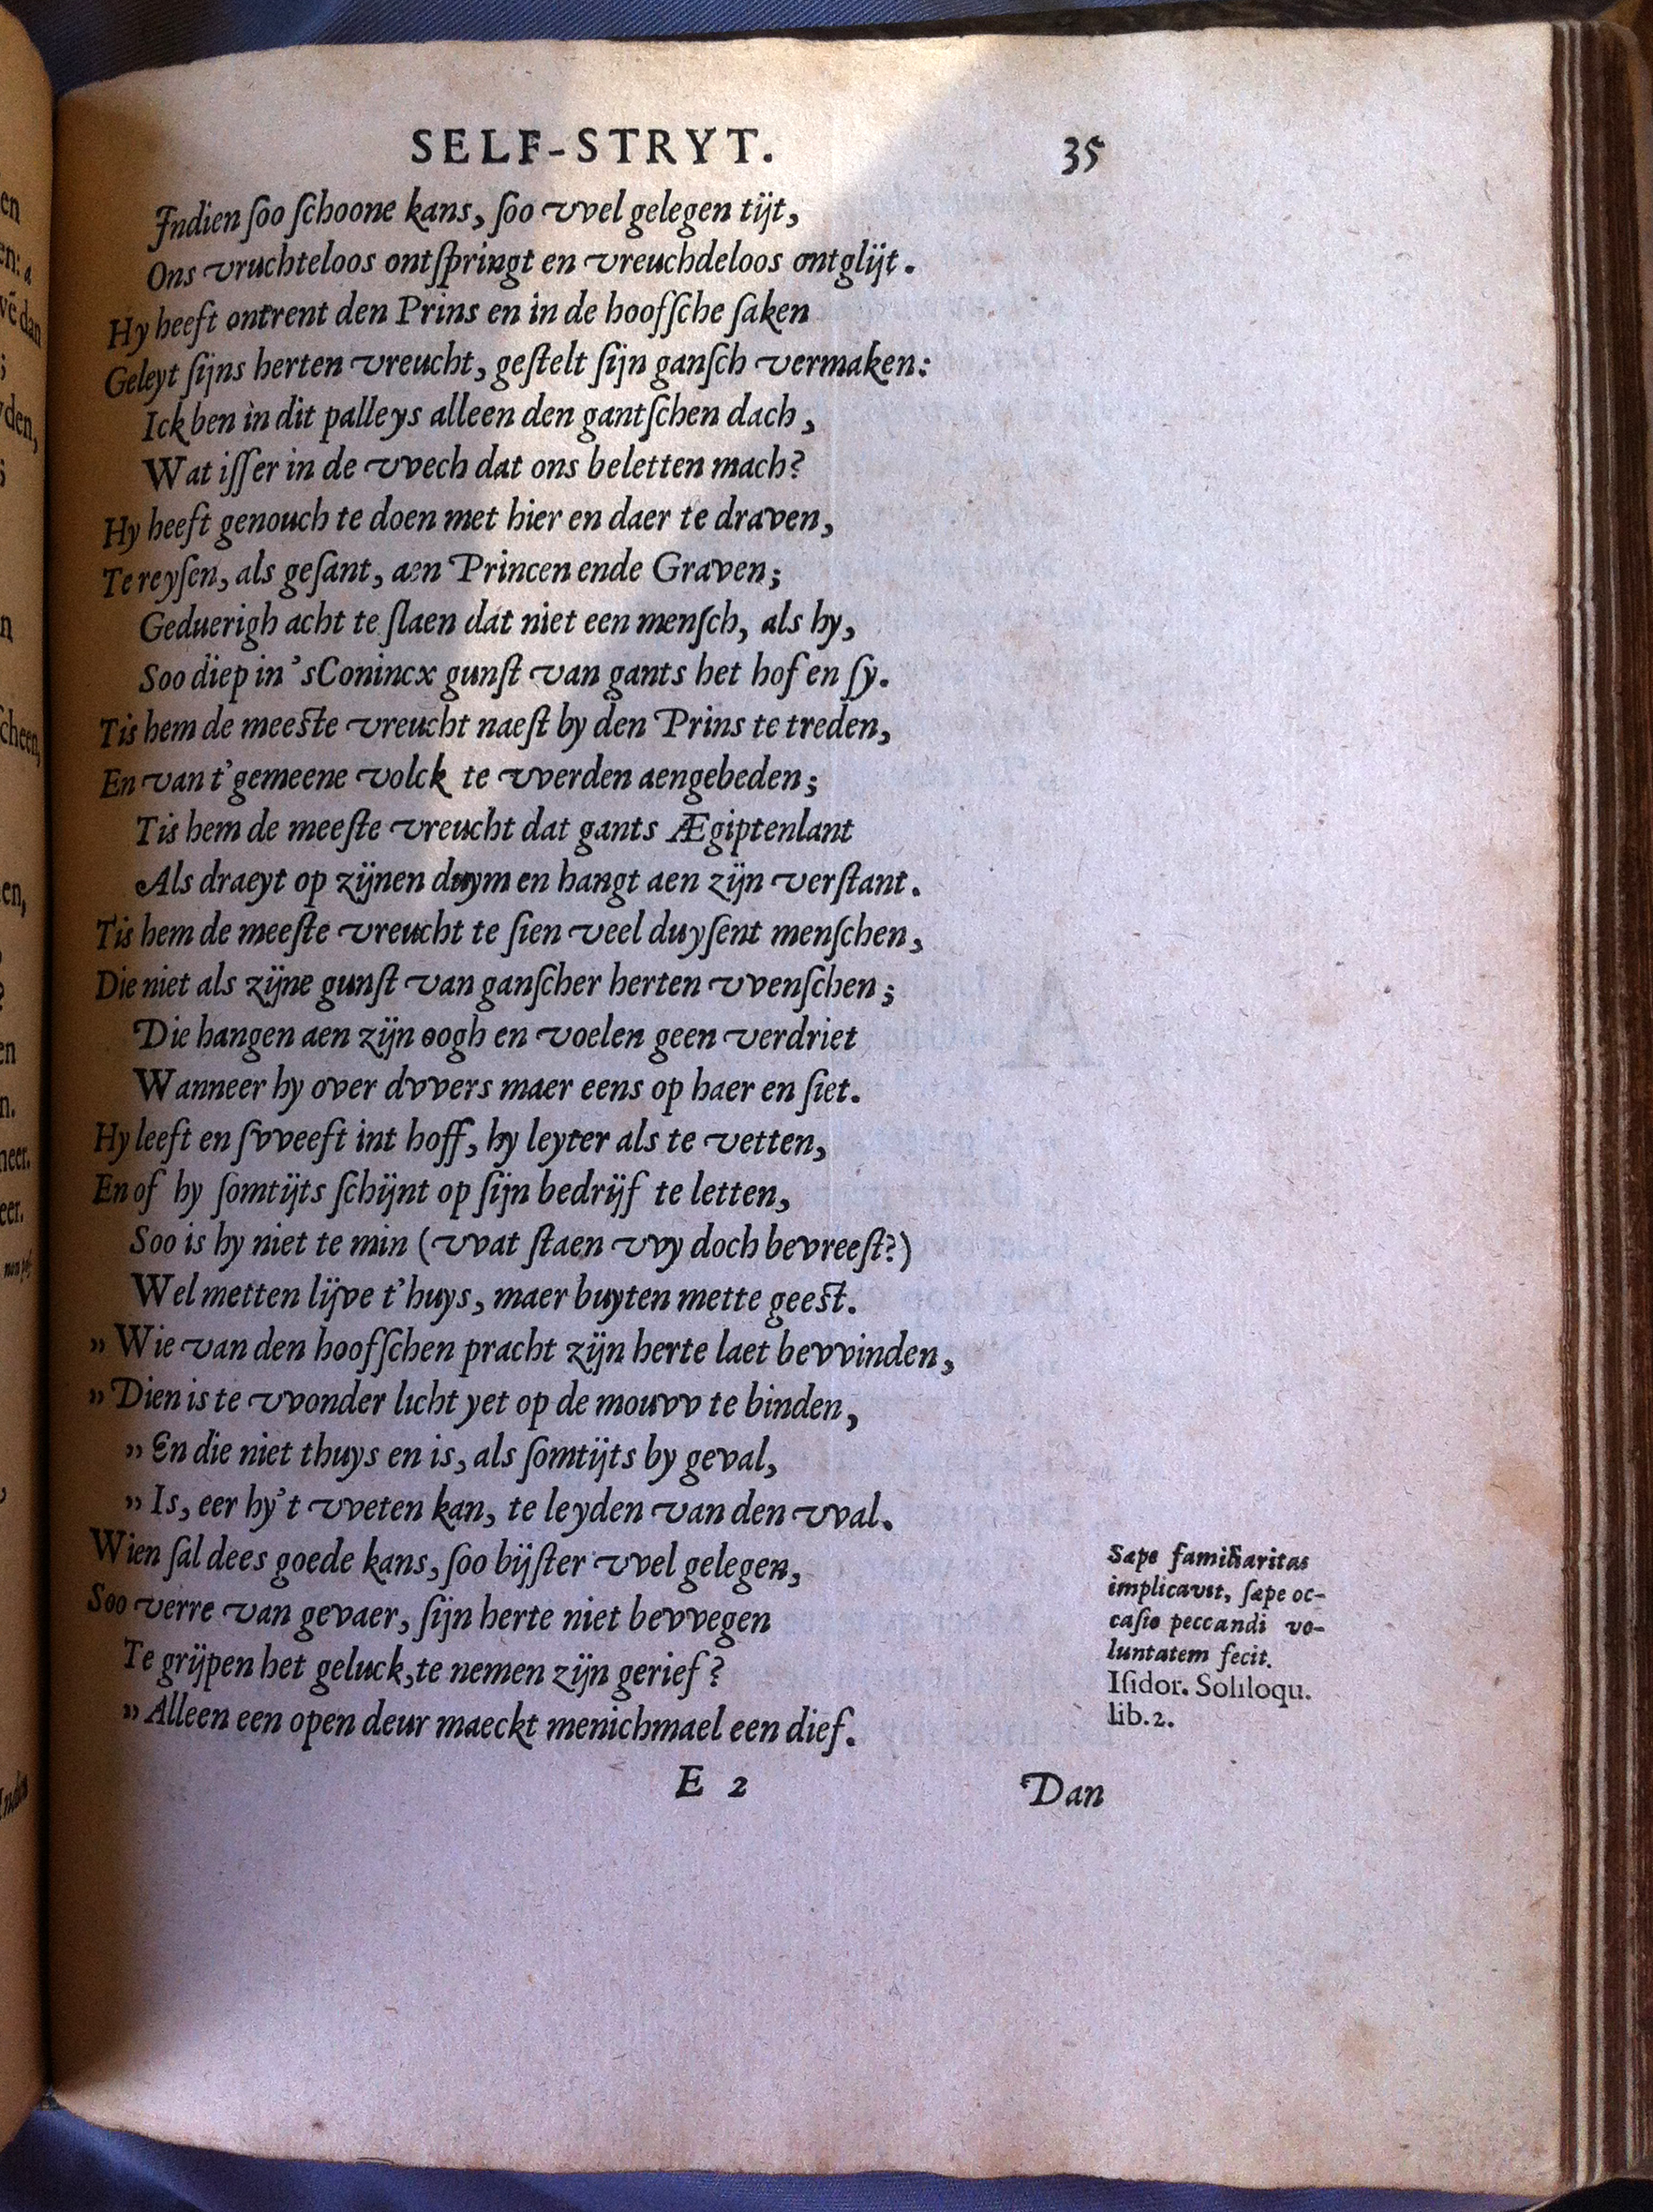 SELF-STRYT. 35
Indien ſoo ſchoone kans, ſoo vvel gelegen tijt,
Ons vruchteloos ontſpringt en vreuchdeloos ontglijt.
Hy heeft ontrent den Prins en in de hoofſche ſaken
Geleyt ſijns herten vreucht, geſtelt ſijn ganſch vermaken:
Ick ben in dit palleys alleen den gantſchen dach,
Wat iſſer in de vvech dat ons beletten mach?
Hy heeft genouch te doen met hier en daer te draven,
Te reyſen, als geſant, aen Princen ende Graven;
Geduerigh acht te ſlaen dat niet een menſch, als hy,
Soo diep in 'sConincx gunſt van gants het hof en ſy.
Tis hem de meeſte vreucht naeſt by den Prins te treden,
En van t'gemeene volck te vverden aengebeden;
Tis hem de meeſte vreucht dat gants Ægiptenlant
Als draeyt op zijnen duym en hangt aen zijn verſtant.
Tis hem de meeſte vreucht te ſien veel duyſent menſchen,
Die niet als zijne gunſt van ganſcher herten vvenſchen;
Die hangen aen zijn oogh en voelen geen verdriet
Wanneer hy over dvvers maer eens op haer en ſiet.
Hy leeft en ſvveeft int hoff, hy leyter als te vetten,
En of hy ſomtijts ſchijnt op ſijn bedrijf te letten,
Soo is hy niet te min (vvat ſtaen vvy doch bevreeſt?)
Wel metten lijve t'huys, maer buyten mette geeſt.
„ Wie van den hoofſchen pracht zijn herte laet bevvinden,
„ Dien is te vvonder licht yet op de mouvv te binden,
„ En die niet thuys en is, als ſomtijts by geval,
„ Is, eer hy't vveten kan, te leyden van den vval.
Wien ſal dees goede kans, ſoo bijſter vvel gelegen,
Soo verre van gevaer, ſijn herte niet bevvegen
Te grijpen het geluck, te nemen zijn gerief?
„ Alleen een open deur maeckt menichmael een dief.
Sæpe familiaritas
implicavit, ſæpe oc-
caſio peccandi vo-
luntatem fecit.
Iſidor. Soliloqu.
lib.2.
E 2 Dan